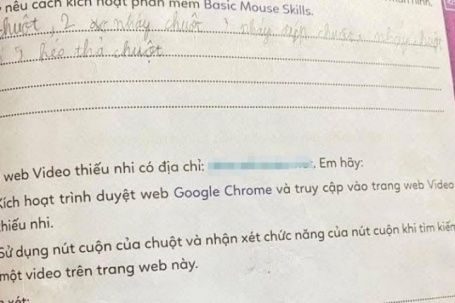 nêu cách kích hoạt phần mềm Basic Mouse Skills.
chuột, 2 nháy chuột, nháy chuột, nháy
kéo thả chuột
web Video thiếu nhi có địa chỉ: . Em hãy:
Kích hoạt trình duyệt web Google Chrome và truy cập vào trang web Video
thiếu nhi.
Sử dụng nút cuộn của chuột và nhận xét chức năng của nút cuộn khi tìm kiếm
một video trên trang web này.
xét: